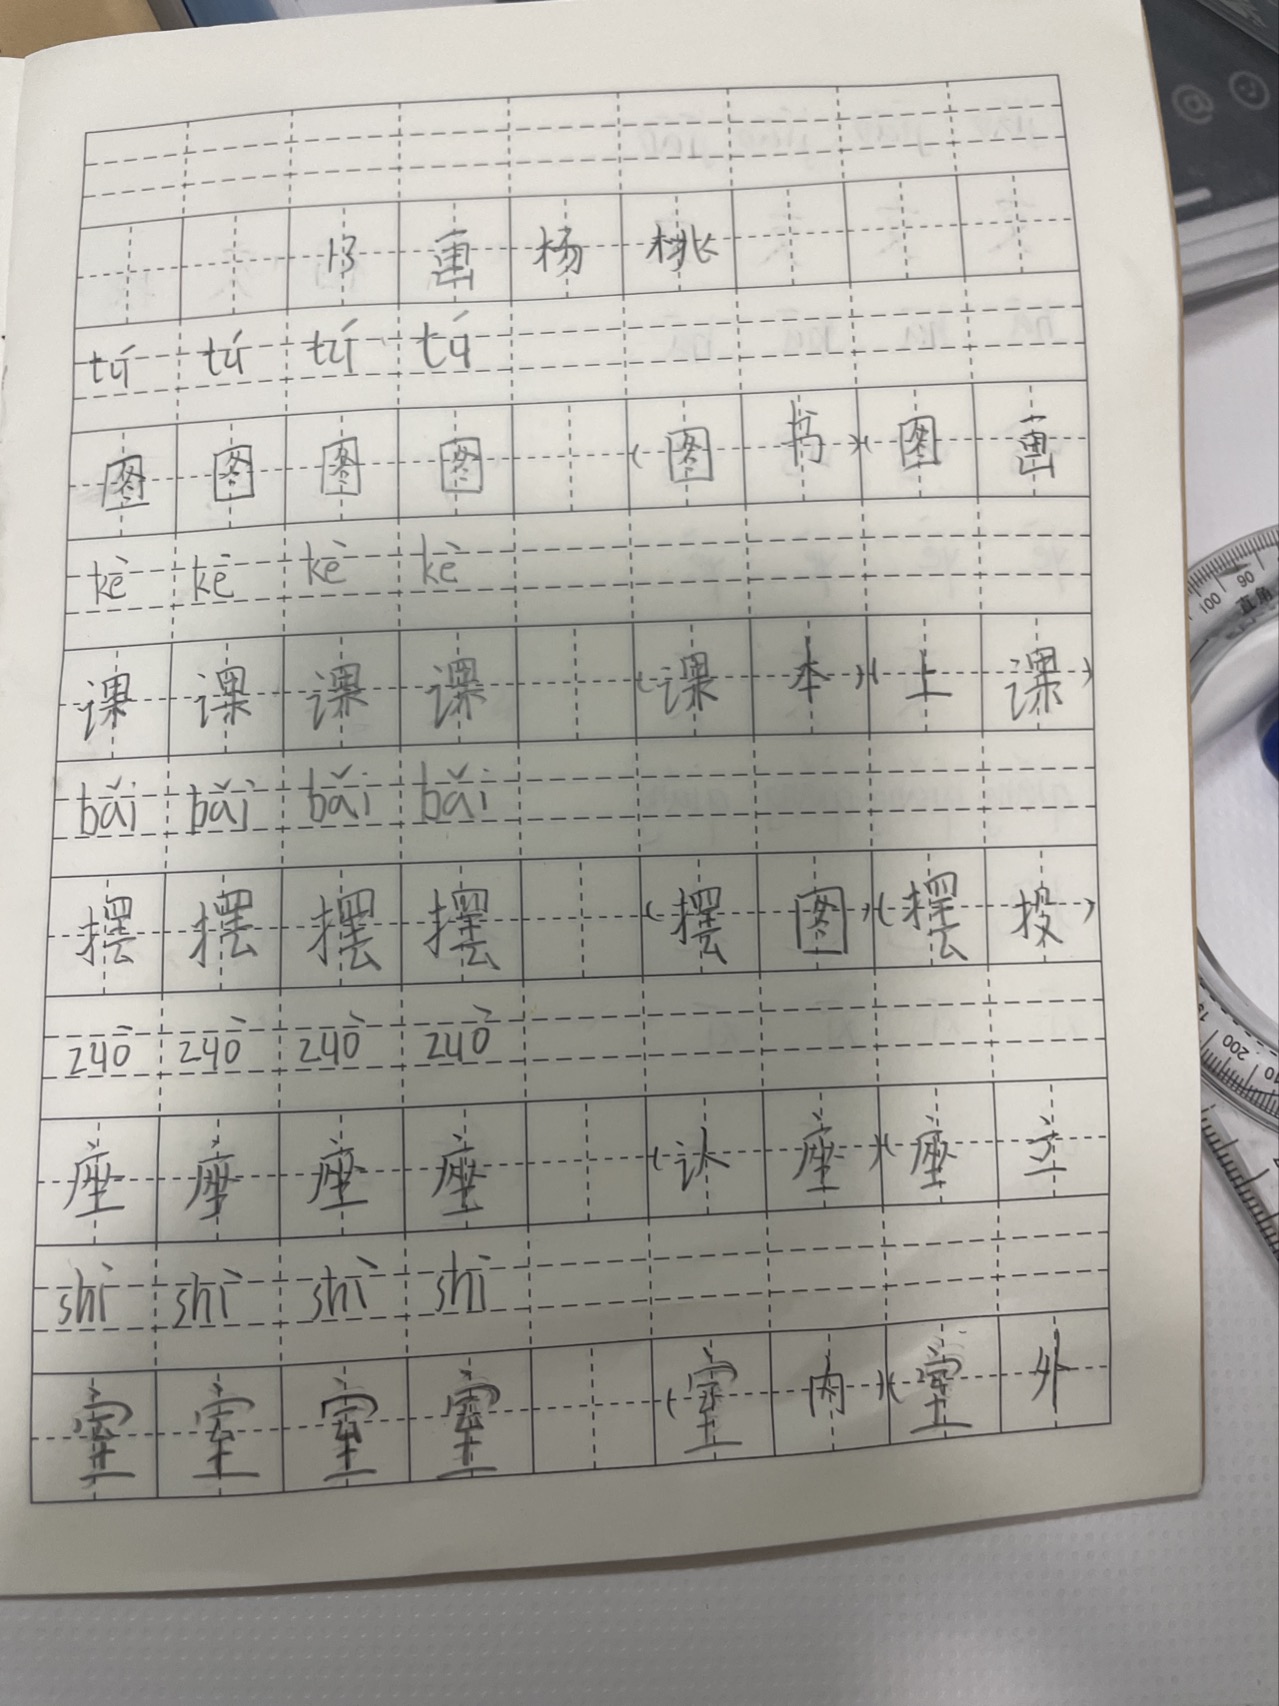 13 画 杨 桃
tú tú tú tú
图 图 图 图 (图 书)(图 画
kè kè kè kè
课 课 课 课 (课 本)(上 课)
bǎi bǎi bǎi bǎi
摆 摆 摆 摆 (摆 图)(摆 投)
zuò zuò zuò zuò
座 座 座 座 (认 座)(座 立
shì shì shì shì
室 室 室 室 (室 内)(室 外
100 90
直角
200